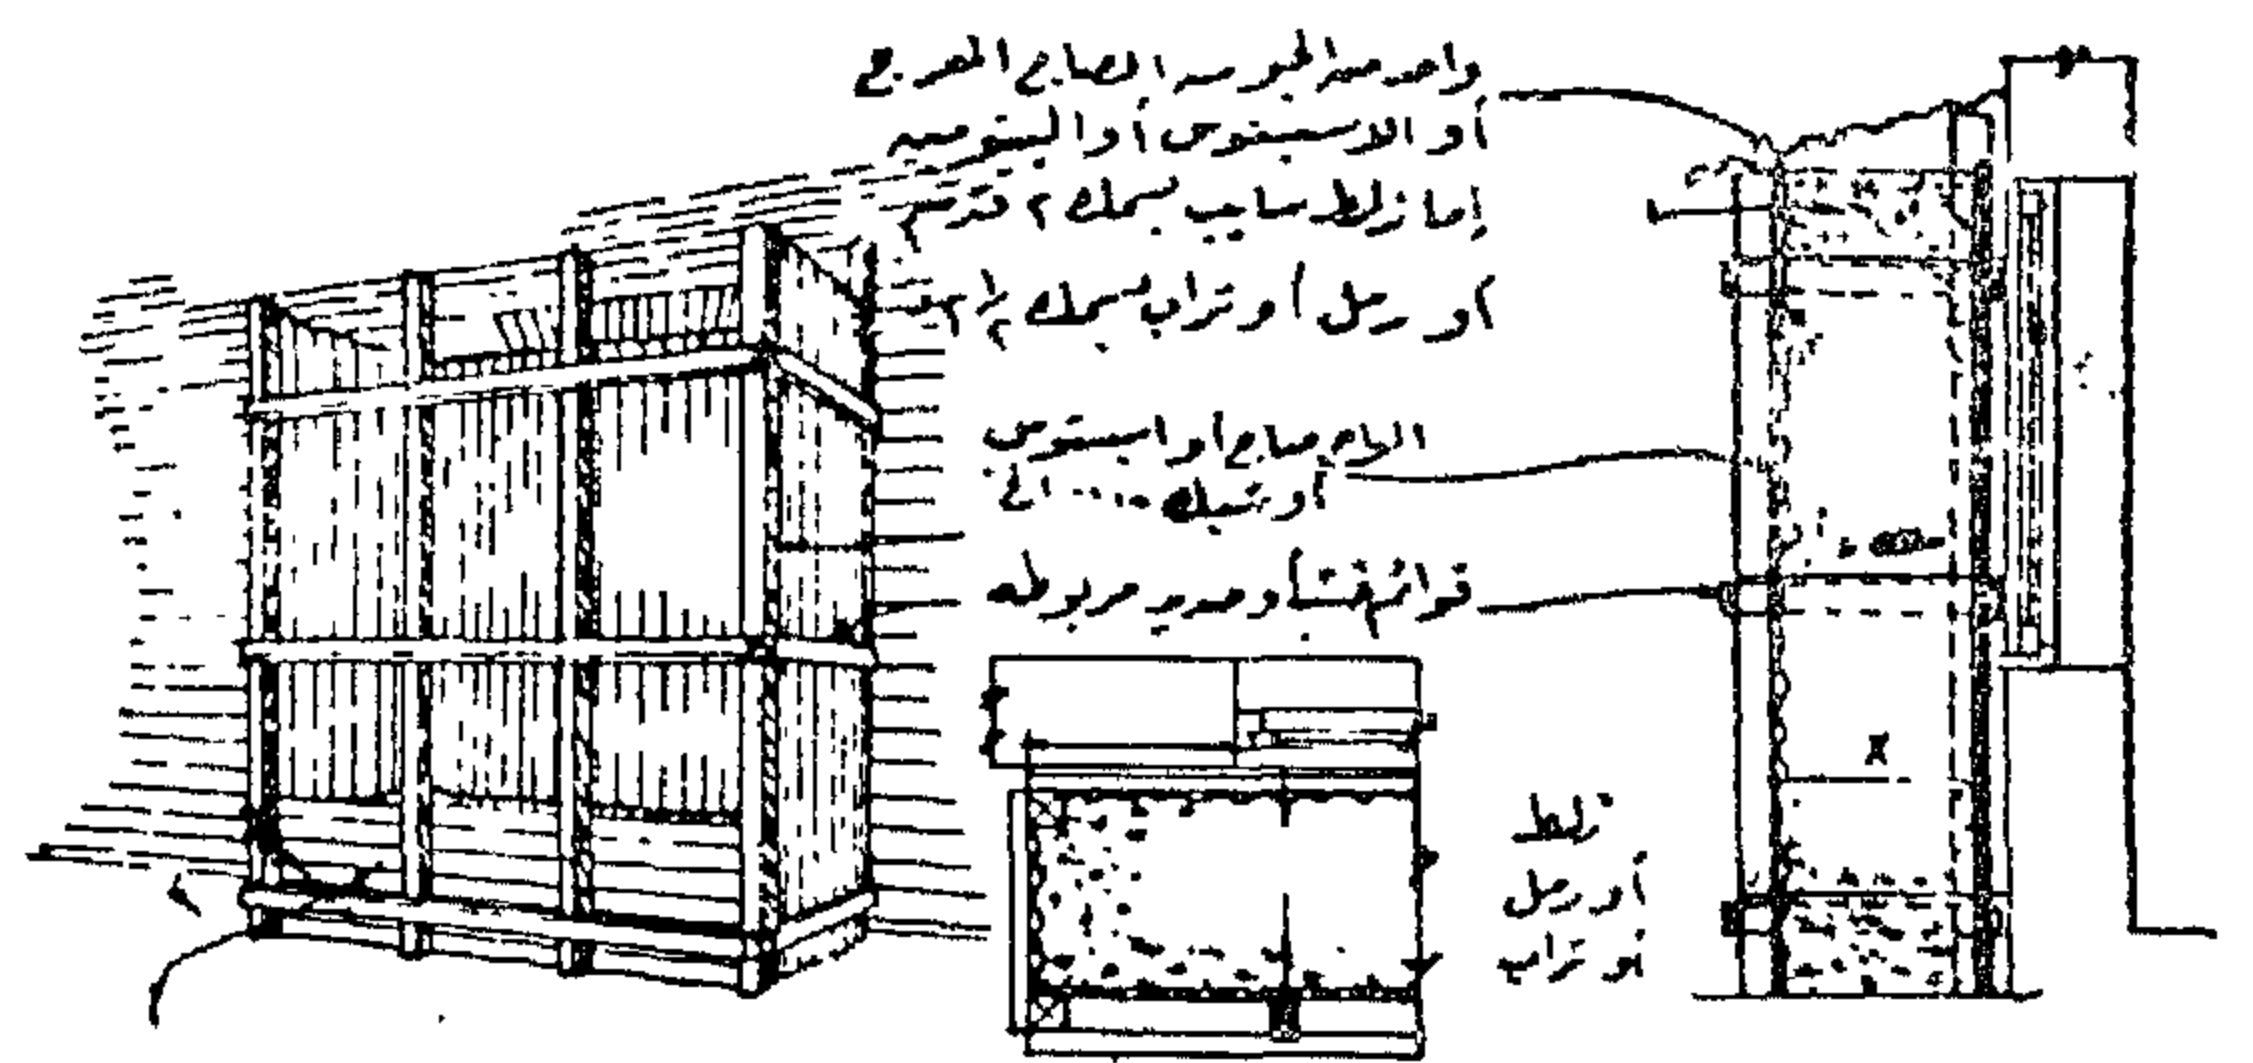 واحد من الجوسه الصاج المعرج
أو الاسبستوس أو البيتومين
إما زلط سايب بسمك ٢ قدم
أو رمل أو تراب بسمك
الواح صاج أو اسبستوس
أو شبك .... الخ
قوائم خشب أو حديد مربوطه
زلط
أو رمل
أو تراب
X